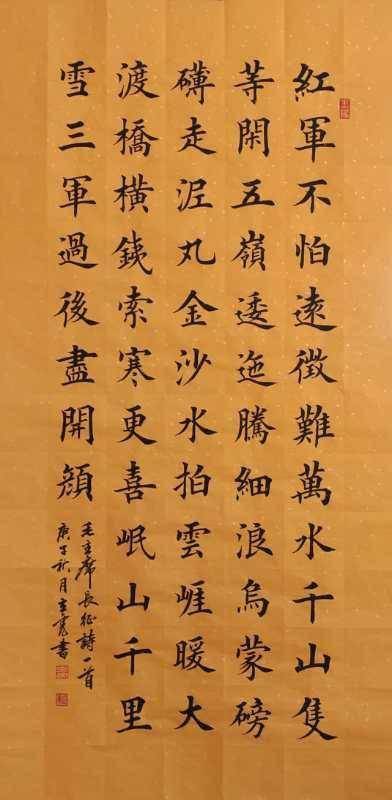 紅軍不怕遠徵難萬水千山隻
等閑五嶺逶迤騰細浪烏蒙磅
礴走泥丸金沙水拍雲崕暖大
渡橋橫銕索寒更喜岷山千里
雪三軍過後盡開顏
毛主席長征詩一首
庚子秋月書